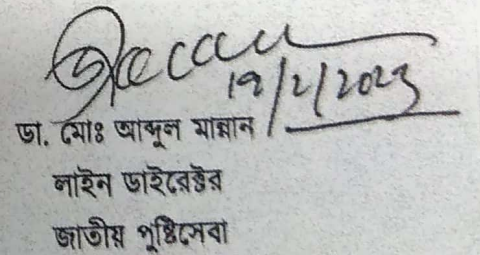 19/2/2023
ডা. মোঃ আব্দুল মান্নান
লাইন ডাইরেক্টর
জাতীয় পুষ্টিসেবা